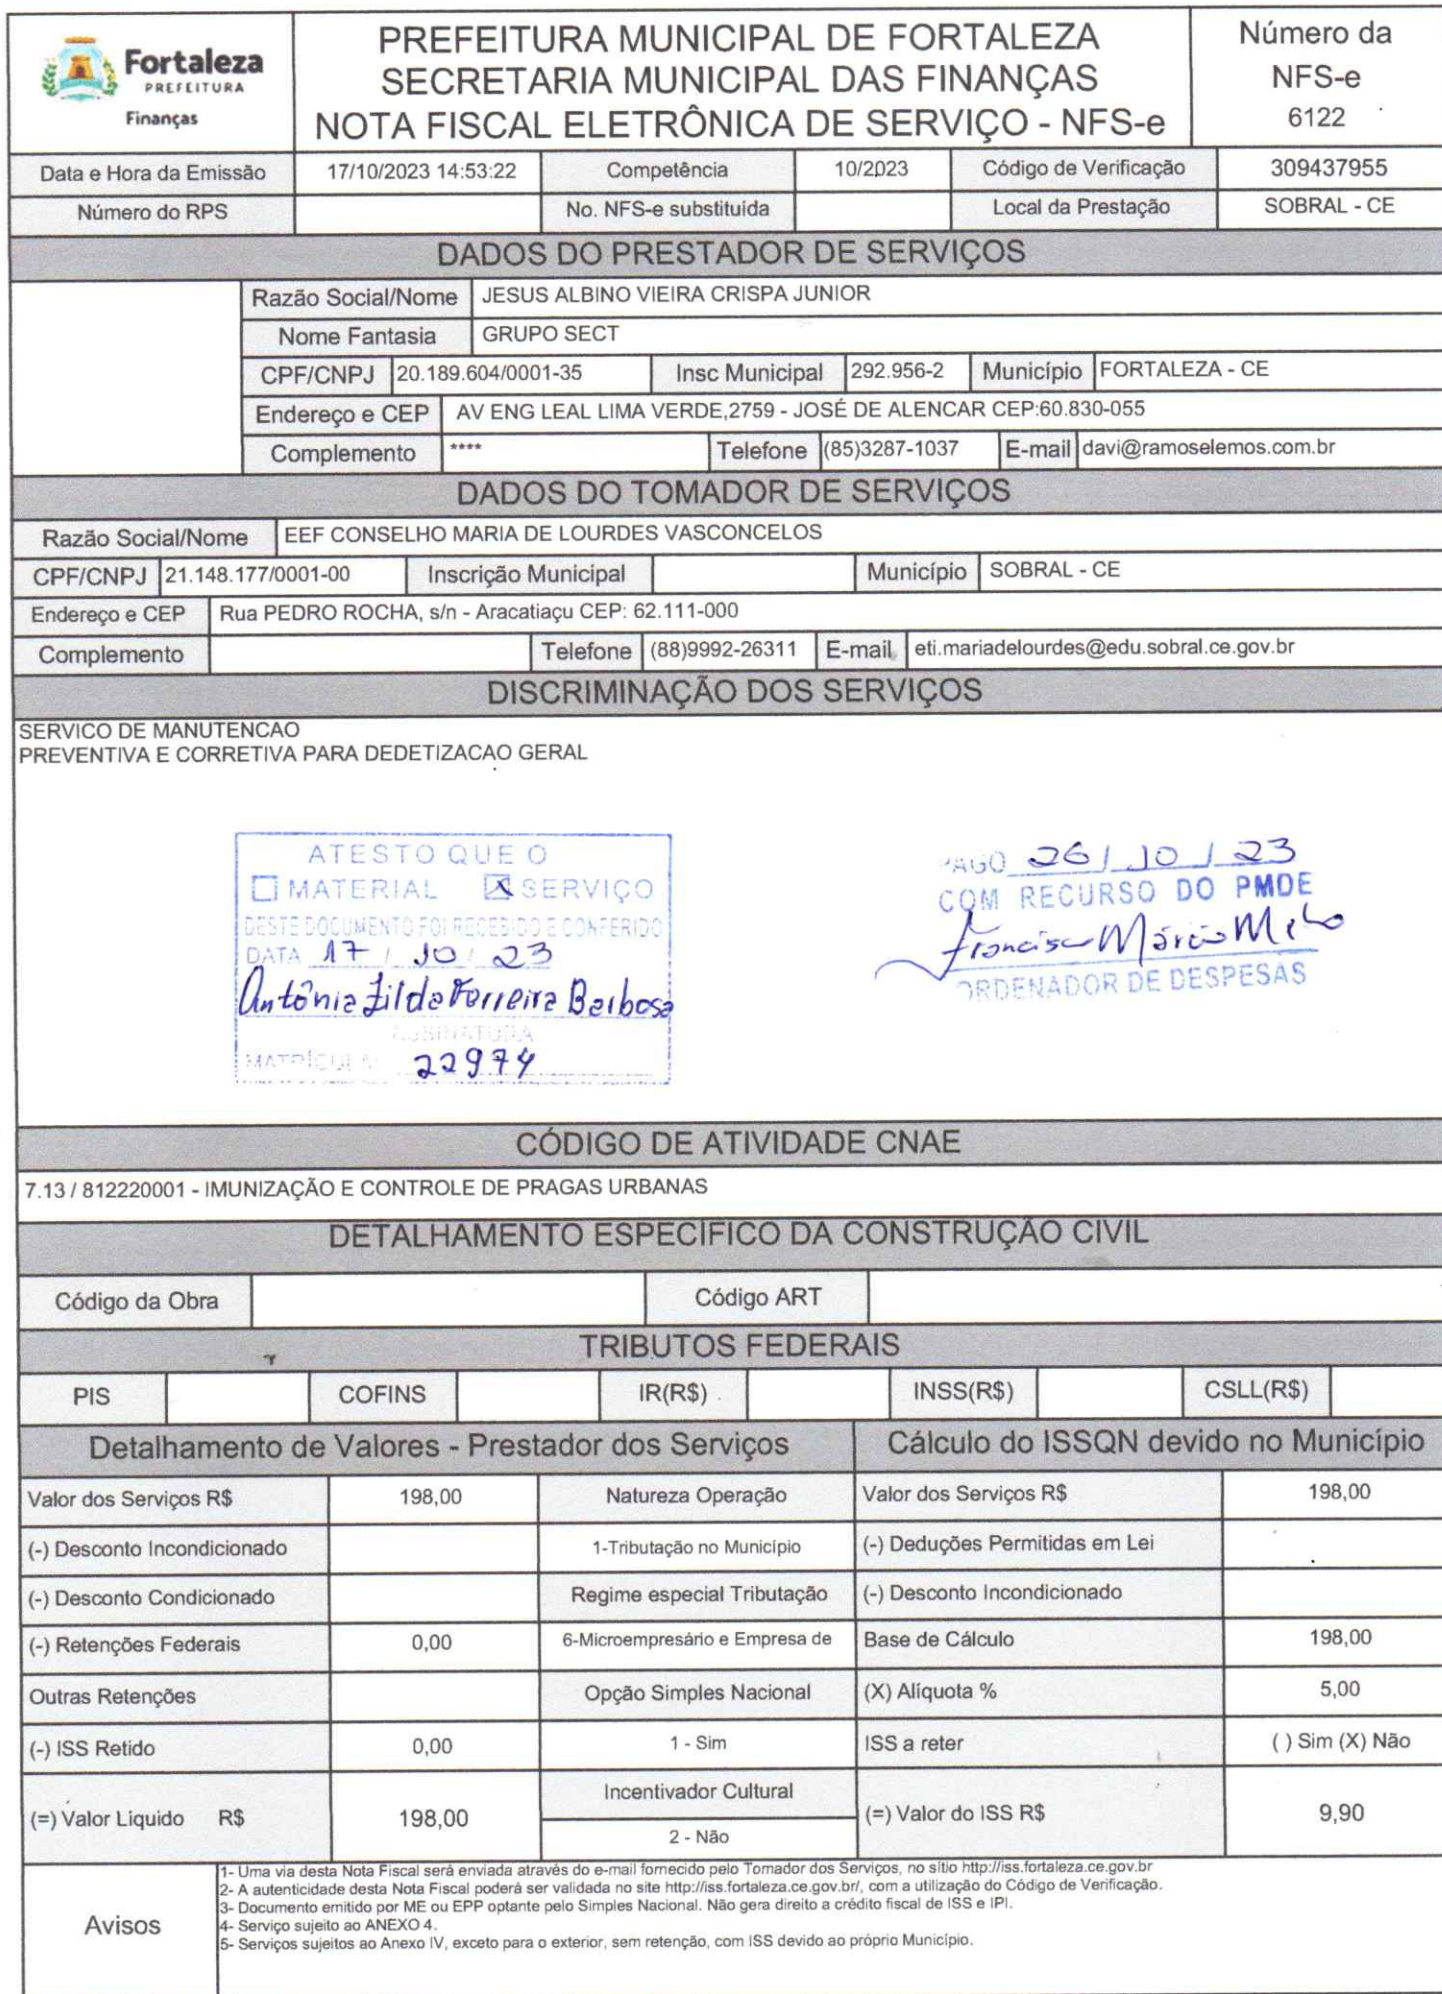 Fortaleza
PREFEITURA
Finanças
PREFEITURA MUNICIPAL DE FORTALEZA
SECRETARIA MUNICIPAL DAS FINANÇAS
NOTA FISCAL ELETRÔNICA DE SERVIÇO - NFS-e
Número da
NFS-e
6122
Data e Hora da Emissão 17/10/2023 14:53:22 Competência 10/2023 Código de Verificação 309437955
Número do RPS No. NFS-e substituída Local da Prestação SOBRAL - CE
DADOS DO PRESTADOR DE SERVIÇOS
Razão Social/Nome JESUS ALBINO VIEIRA CRISPA JUNIOR
Nome Fantasia GRUPO SECT
CPF/CNPJ 20.189.604/0001-35 Insc Municipal 292.956-2 Município FORTALEZA - CE
Endereço e CEP AV ENG LEAL LIMA VERDE,2759 - JOSÉ DE ALENCAR CEP:60.830-055
Complemento **** Telefone (85)3287-1037 E-mail davi@ramoselemos.com.br
DADOS DO TOMADOR DE SERVIÇOS
Razão Social/Nome EEF CONSELHO MARIA DE LOURDES VASCONCELOS
CPF/CNPJ 21.148.177/0001-00 Inscrição Municipal Município SOBRAL - CE
Endereço e CEP Rua PEDRO ROCHA, s/n - Aracatiaçu CEP: 62.111-000
Complemento Telefone (88)9992-26311 E-mail eti.mariadelourdes@edu.sobral.ce.gov.br
DISCRIMINAÇÃO DOS SERVIÇOS
SERVICO DE MANUTENCAO
PREVENTIVA E CORRETIVA PARA DEDETIZACAO GERAL
ATESTO QUE O
MATERIAL X SERVIÇO
DESTE DOCUMENTO FOI RECEBIDO E CONFERIDO
DATA 17 / 10 / 23
Antônia Zilda Ferreira Barbosa
ASSINATURA
MATRÍCULA 22974
PAGO 26 / 10 / 23
COM RECURSO DO PMDE
Francisco Márcio Melo
ORDENADOR DE DESPESAS
CÓDIGO DE ATIVIDADE CNAE
7.13 / 812220001 - IMUNIZAÇÃO E CONTROLE DE PRAGAS URBANAS
DETALHAMENTO ESPECÍFICO DA CONSTRUÇÃO CIVIL
Código da Obra Código ART
TRIBUTOS FEDERAIS
PIS COFINS IR(R$) INSS(R$) CSLL(R$)
Detalhamento de Valores - Prestador dos Serviços Cálculo do ISSQN devido no Município
Valor dos Serviços R$ 198,00 Natureza Operação Valor dos Serviços R$ 198,00
(-) Desconto Incondicionado 1-Tributação no Município (-) Deduções Permitidas em Lei
(-) Desconto Condicionado Regime especial Tributação (-) Desconto Incondicionado
(-) Retenções Federais 0,00 6-Microempresário e Empresa de Base de Cálculo 198,00
Outras Retenções Opção Simples Nacional (X) Alíquota % 5,00
(-) ISS Retido 0,00 1 - Sim ISS a reter ( ) Sim (X) Não
(=) Valor Líquido R$ 198,00 Incentivador Cultural (=) Valor do ISS R$ 9,90
2 - Não
Avisos
1- Uma via desta Nota Fiscal será enviada através do e-mail fornecido pelo Tomador dos Serviços, no sítio http://iss.fortaleza.ce.gov.br
2- A autenticidade desta Nota Fiscal poderá ser validada no site http://iss.fortaleza.ce.gov.br/, com a utilização do Código de Verificação.
3- Documento emitido por ME ou EPP optante pelo Simples Nacional. Não gera direito a crédito fiscal de ISS e IPI.
4- Serviço sujeito ao ANEXO 4.
5- Serviços sujeitos ao Anexo IV, exceto para o exterior, sem retenção, com ISS devido ao próprio Município.